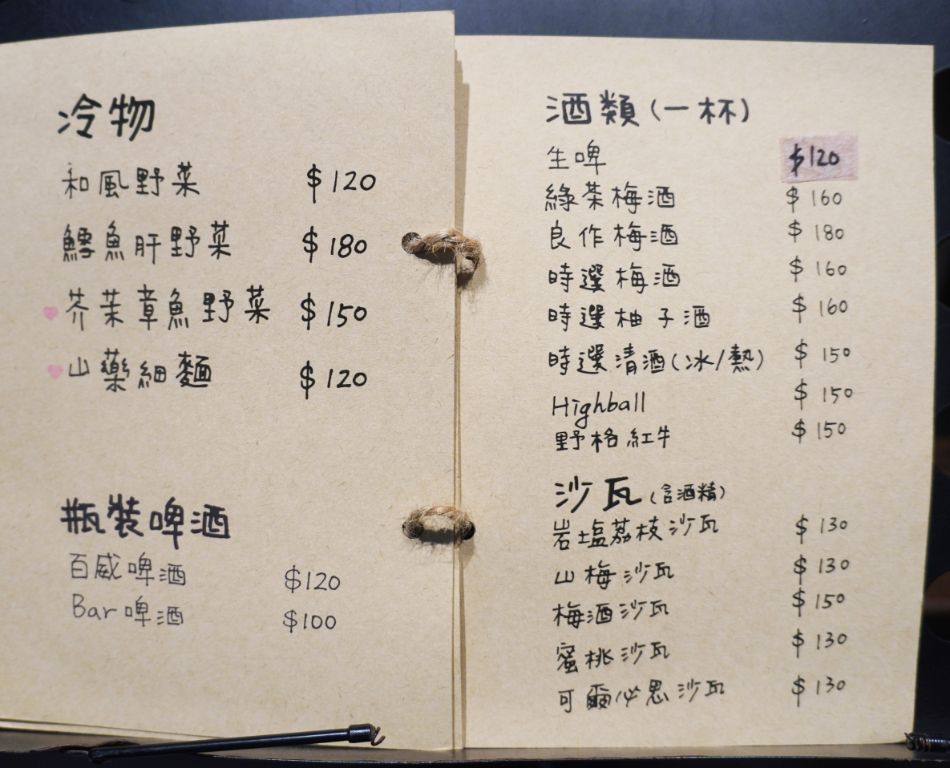 冷物
和風野菜 $120
鱈魚肝野菜 $180
芥茉章魚野菜 $150
山藥細麵 $120
瓶裝啤酒
百威啤酒 $120
Bar啤酒 $100
酒類(一杯)
生啤 $120
綠茶梅酒 $160
良作梅酒 $180
時選梅酒 $160
時選柚子酒 $160
時選清酒(冰/熱) $150
Highball $150
野格紅牛 $150
沙瓦(含酒精)
岩塩荔枝沙瓦 $130
山梅沙瓦 $130
梅酒沙瓦 $150
蜜桃沙瓦 $130
可爾必思沙瓦 $130